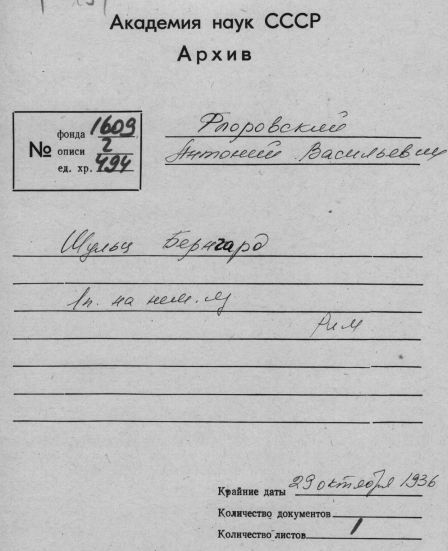 Академия наук СССР
Архив
№
фонда 1609
описи 2
ед. хр. 494
Флоровский
Антоний Васильевич
Шульц Бернгард
1п. на нем. яз
Рим
Крайние даты 29 октября 1936
Количество документов
Количество листов 1